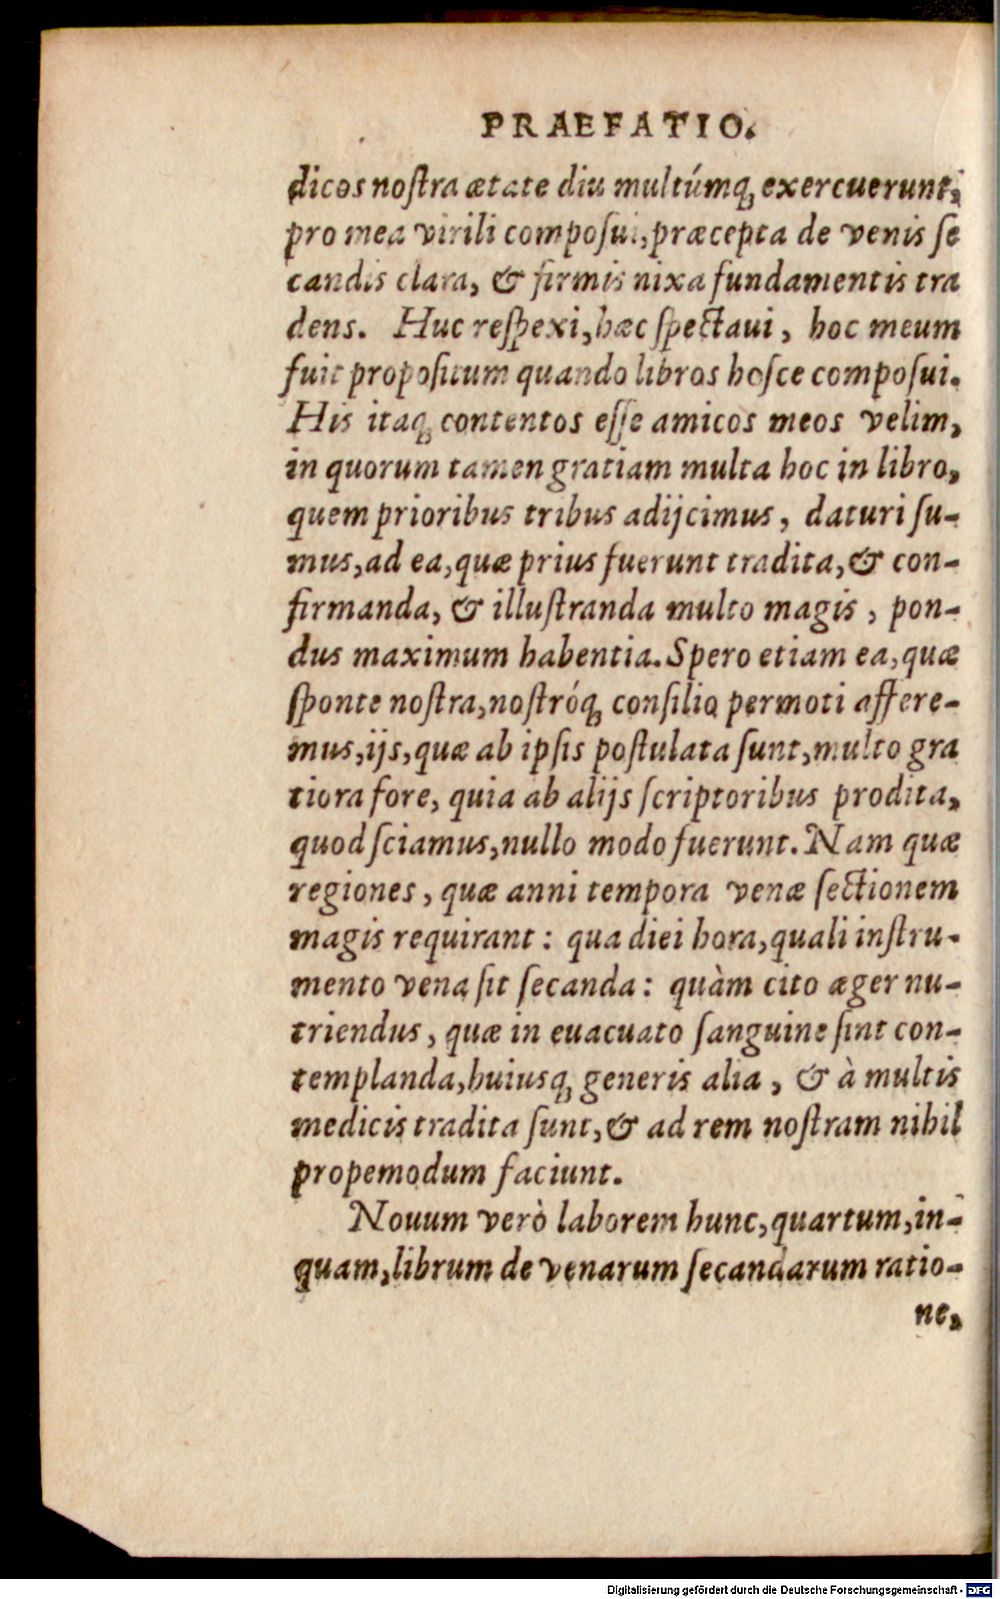 PRAEFATIO.
dicos noſtra ætate diu multúmq; exercuerunt,
pro mea virili compoſui, præcepta de venis ſe
candis clara, & firmis nixa fundamentis tra
dens. Huc reſpexi, hæc ſpectaui, hoc meum
fuit propoſitum quando libros hoſce compoſui.
His itaq; contentos eſſe amicos meos velim,
in quorum tamen gratiam multa hoc in libro,
quem prioribus tribus adijcimus, daturi ſu-
mus, ad ea, quæ prius fuerunt tradita, & con-
firmanda, & illuſtranda multo magis, pon-
dus maximum habentia. Spero etiam ea, quæ
ſponte noſtra, noſtróq; conſilio permoti affere-
mus, ijs, quæ ab ipſis poſtulata ſunt, multo gra
tiora fore, quia ab alijs ſcriptoribus prodita,
quod ſciamus, nullo modo fuerunt. Nam quæ
regiones, quæ anni tempora venæ ſectionem
magis requirant: qua diei hora, quali inſtru-
mento vena ſit ſecanda: quàm cito æger nu-
triendus, quæ in euacuato ſanguine ſint con-
templanda, huiusq; generis alia, & à multis
medicis tradita ſunt, & ad rem noſtram nihil
propemodum faciunt.
Nouum verò laborem hunc, quartum, in-
quam, librum de venarum ſecandarum ratio-
ne,
Digitalisierung gefördert durch die Deutsche Forschungsgemeinschaft - DFG